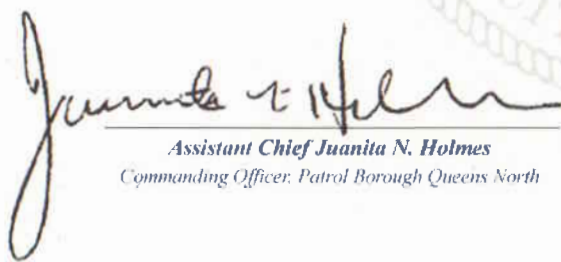 Juanita N Holmes
Assistant Chief Juanita N. Holmes
Commanding Officer, Patrol Borough Queens North